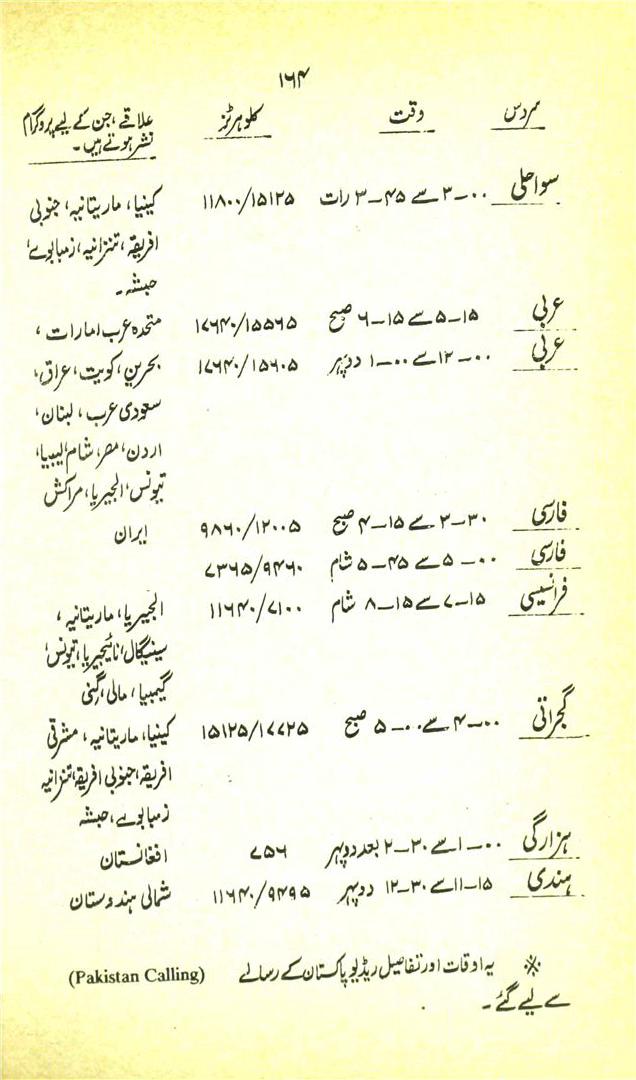 ۱۶۴
سروس وقت کلو ہرٹز علاقے، جن کے لیے پروگرام
نشر ہوتے ہیں۔
سواحلی ۰۰–۳ سے ۴۵–۳ رات ۱۱۸۰۰/۱۵۱۲۵ کینیا، ماریتانیہ، جنوبی
افریقہ، تنزانیہ، زمبابوے،
حبشہ۔
عربی ۱۵–۵ سے ۱۵–۶ صبح ۱۷۶۴۰/۱۵۵۶۵ متحدہ عرب امارات،
عربی ۰۰–۱۲ سے ۰۰–۱ دوپہر ۱۷۶۴۰/۱۵۶۰۵ بحرین، کویت، عراق،
سعودی عرب، لبنان،
اردن، مصر، شام، لیبیا،
تیونس، الجیریا، مراکش
فارسی ۳۰–۳ سے ۱۵–۴ صبح ۹۸۶۰/۱۲۰۰۵ ایران
فارسی ۰۰–۵ سے ۴۵–۵ شام ۷۳۶۵/۹۴۶۰
فرانسیسی ۱۵–۷ سے ۱۵–۸ شام ۱۱۶۴۰/۷۱۰۰ الجیریا، ماریتانیہ،
سینیگال، نائیجیریا، تیونس،
گیمبیا، مالی، گنی
گجراتی ۰۰–۴ سے ۰۰–۵ صبح ۱۵۱۲۵/۱۷۷۲۵ کینیا، ماریتانیہ، مشرقی
افریقہ، جنوبی افریقہ، تنزانیہ
زمبابوے، حبشہ
ہزارگی ۰۰–۱ سے ۳۰–۲ بعد دوپہر ۷۵۶ افغانستان
ہندی ۱۵–۱۱ سے ۳۰–۱۲ دوپہر ۱۱۶۴۰/۹۴۹۵ شمالی ہندوستان
※ یہ اوقات اور تفاصیل ریڈیو پاکستان کے رسالے (Pakistan Calling)
سے لیے گئے۔